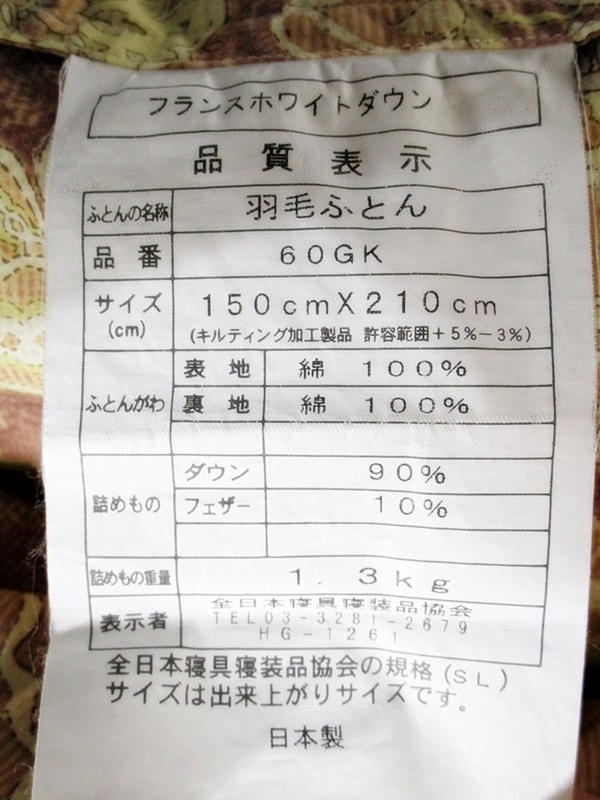 フランスホワイトダウン
品質表示
ふとんの名称 羽毛ふとん
品番 60GK
サイズ(cm) 150cmX210cm
(キルティング加工製品 許容範囲+5%−3%)
ふとんがわ 表地 綿 100%
裏地 綿 100%
詰めもの ダウン 90%
フェザー 10%
詰めもの重量 1.3kg
表示者 全日本寝具寝装品協会
TEL03-3281-2679
HG-1261
全日本寝具寝装品協会の規格(SL)
サイズは出来上がりサイズです。
日本製